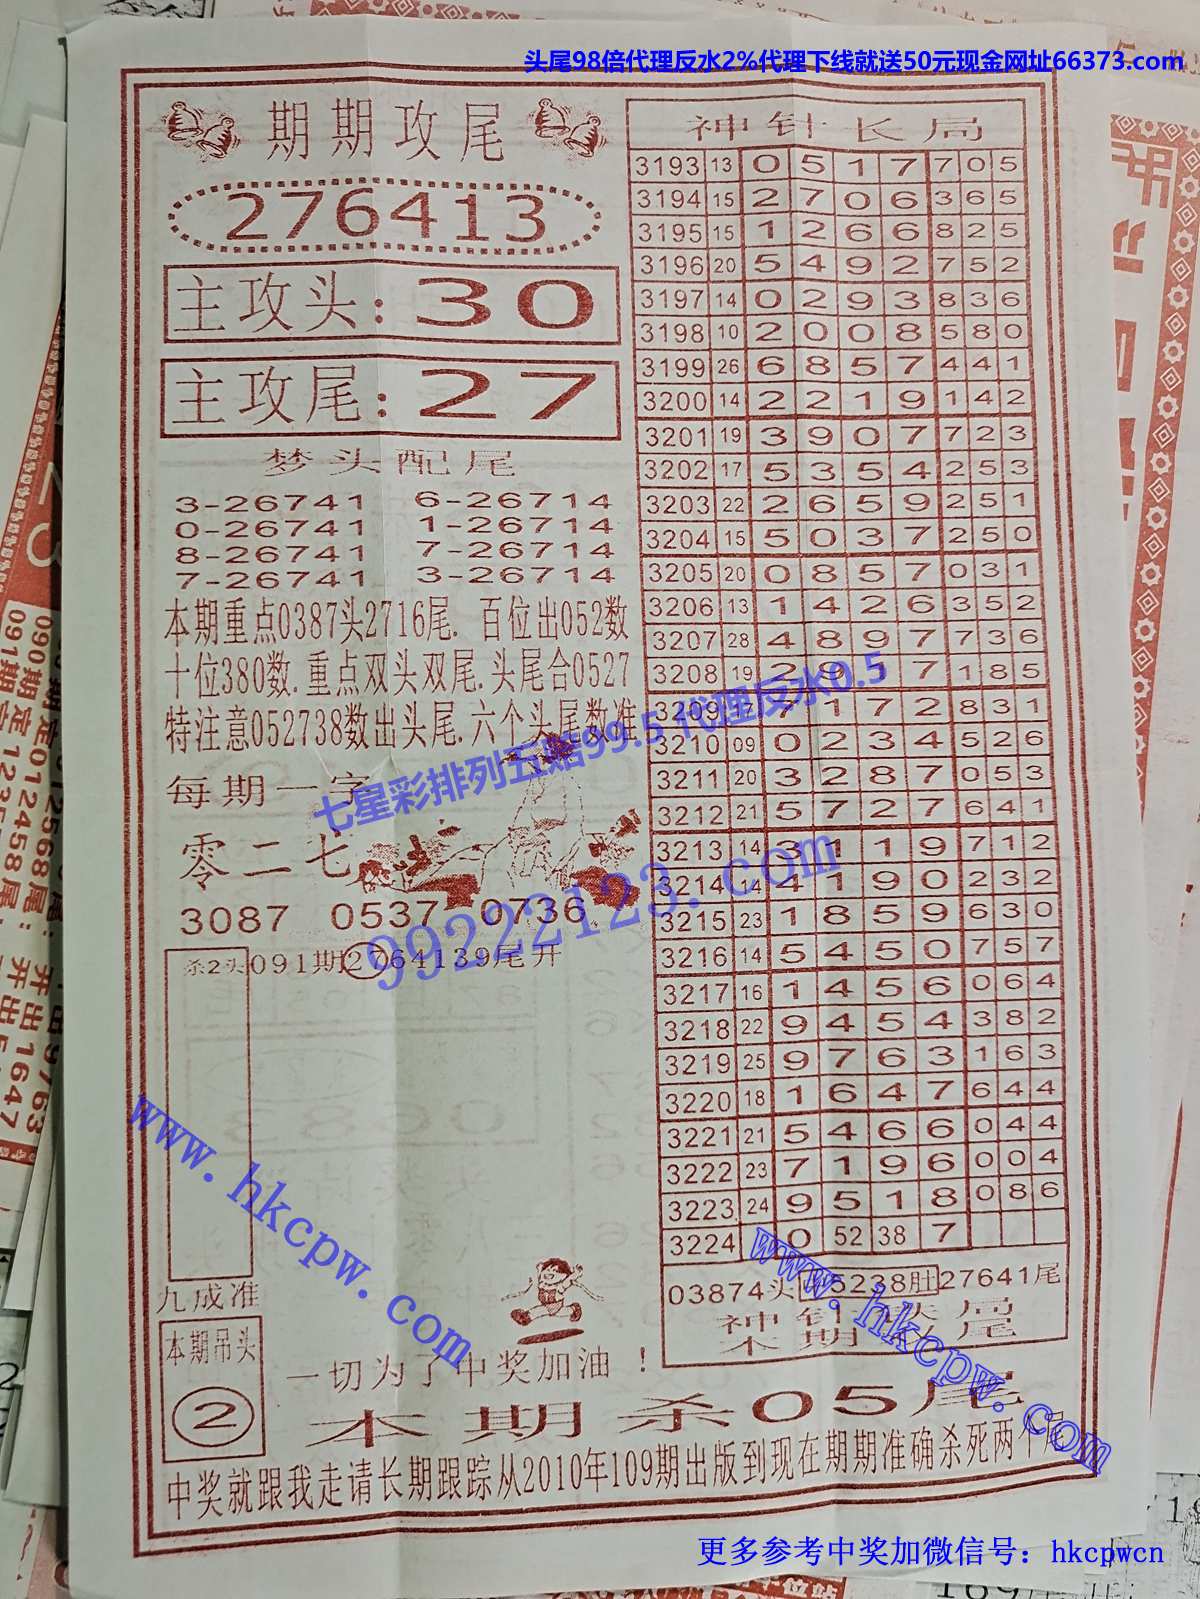 头尾98倍代理反水2%代理下线就送50元现金网址66373.com
期期攻尾
276413
主攻头:30
主攻尾:27
梦头配尾
3-26741 6-26714
0-26741 1-26714
8-26741 7-26714
7-26741 3-26714
本期重点0387头2716尾.百位出052数
十位380数.重点双头双尾.头尾合0527
特注意052738数出头尾.六个头尾数准
每期一字
零二七
3087 0537 0736
杀2头091期2764139尾开
九成准
本期吊头
2
一切为了中奖加油!
神针长局
3193 13 0 5 1 7 7 0 5
3194 15 2 7 0 6 3 6 5
3195 15 1 2 6 6 8 2 5
3196 20 5 4 9 2 7 5 2
3197 14 0 2 9 3 8 3 6
3198 10 2 0 0 8 5 8 0
3199 26 6 8 5 7 4 4 1
3200 14 2 2 1 9 1 4 2
3201 19 3 9 0 7 7 2 3
3202 17 5 3 5 4 2 5 3
3203 22 2 6 5 9 2 5 1
3204 15 5 0 3 7 2 5 0
3205 20 0 8 5 7 0 3 1
3206 13 1 4 2 6 3 5 2
3207 28 4 8 9 7 7 3 6
3208 19 2 7 1 8 5
3209 17 7 1 7 2 8 3 1
3210 09 0 2 3 4 5 2 6
3211 20 3 2 8 7 0 5 3
3212 21 5 7 2 7 6 4 1
3213 14 3 1 1 9 7 1 2
3214 14 4 1 9 0 2 3 2
3215 23 1 8 5 9 6 3 0
3216 14 5 4 5 0 7 5 7
3217 16 1 4 5 6 0 6 4
3218 22 9 4 5 4 3 8 2
3219 25 9 7 6 3 1 6 3
3220 18 1 6 4 7 6 4 4
3221 21 5 4 6 6 0 4 4
3222 23 7 1 9 6 0 0 4
3223 24 9 5 1 8 0 8 6
3224 0 52 38 7
03874头 中5238肚 27641尾
本期杀05尾
中奖就跟我走请长期跟踪从2010年109期出版到现在期期准确杀死两个尾
七星彩排列五赔99.5代理反水0.5
99222123.com
www.hkcpw.com
www.hkcpw.com
更多参考中奖加微信号：hkcpwcn